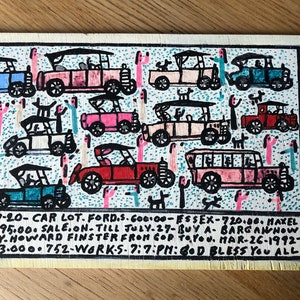 -20- CAR LOT. FORD.S. 600.00- ESSEX- 720.00. MAXEL
95.00. SALE, ON- TILL JULY- 27- BUY A- BARGAN NOW
BY. HOWARD FINSTER FROM GOD TO YOU. MAR-26-1992
3.000.752-WORK.S-7:7:PM. GOD BLESS YOU ALL